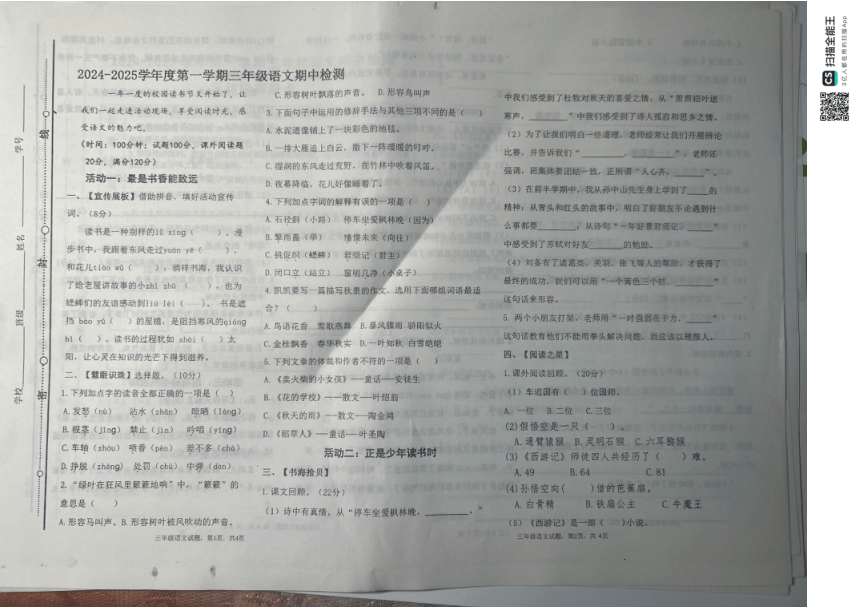 2024-2025学年度第一学期三年级语文期中检测
一年一度的校园读书节又开始了，让
我们一起走进活动现场，享受阅读时光，感
受语文的魅力吧。
(时间：100分钟；试题100分，课外阅读题
20分，满分120分)
活动一：最是书香能致远
一、【宣传展板】借助拼音，填好活动宣传
词。(8分)
读书是一种别样的lǚ xíng（ ）。漫
步书中，我跟着东风走过yuán yě（ ），
和花儿tiào wǔ（ ）；徜徉书海，我认识
了给老屋讲故事的小zhī zhū（ ），也为
蟋蟀们的友谊感动到liú lèi（ ）。书是遮
挡 bào yǔ（ ）的屋檐，是阻挡寒风的qiáng
bì（ ）。读书的过程犹如 shài（ ）太
阳，让心灵在知识的光芒下得到滋养。
二、【慧眼识珠】选择题。(10分)
1. 下列加点字的读音全部正确的一项是（ ）
A. 发怒（nù） 沾水（zhān） 晾晒（làng）
B. 根茎（jīng） 禁止（jìn） 吟唱（yíng）
C. 车轴（zhóu） 喷香（pèn） 差不多（chà）
D. 挣脱（zhèng） 处罚（chù） 中弹（dàn）
2. “绿叶在狂风里簌簌地响”中，“簌簌”的
意思是（ ）
A. 形容马叫声。B. 形容树叶被风吹动的声音。
三年级语文试题，第1页，共4页
C. 形容树叶飘落的声音。 D. 形容鸟叫声
3. 下面句子中运用的修辞手法与其他三项不同的是（ ）
A. 水泥道像铺上了一块彩色的地毯。
B. 一排大雁追上白云，撒下一阵暖暖的叮咛。
C. 湿润的东风走过荒野，在竹林中吹着风笛。
D. 夜幕降临，花儿好像睡着了。
4. 下列加点字词的解释有误的一项是（ ）
A. 石径斜（小路） 停车坐爱枫林晚（因为）
B. 擎雨盖（举） 憧憬未来（向往）
C. 挑促织（蟋蟀） 君须记（君主）
D. 闭口立（站立） 窗明几净（小桌子）
4. 凯凯要写一篇描写秋景的作文，选用下面哪组词语最适
合？（ ）
A. 鸟语花香 莺歌燕舞 B. 暴风骤雨 骄阳似火
C. 金桂飘香 春华秋实 D. 一叶知秋 白雪皑皑
5. 下列文章的体裁和作者不符的一项是（ ）
A. 《卖火柴的小女孩》——童话——安徒生
B. 《花的学校》——散文——叶绍翁
C. 《秋天的雨》——散文——陶金鸿
D. 《稻草人》——童话——叶圣陶
活动二：正是少年读书时
三、【书海拾贝】
1. 课文回顾。(22分)
(1) 诗中有真情。从“停车坐爱枫林晚，________。”
中我们感受到了杜牧对秋天的喜爱之情；从“萧萧梧叶送
寒声，________”中我们感受到了诗人孤寂和思乡之情。
(2) 为了让我们明白一些道理，老师经常让我们开展辩论
比赛，并告诉我们“________，________”，老师还
强调，班集体要团结一致，正所谓“人心齐，________”。
(3) 在前半学期中，我从孙中山先生身上学到了____的
精神；从青头和红头的故事中，明白了好朋友不论遇到什
么事都要________；从诗句“一年好景君须记，________
中感受到了苏轼对好友________的勉励。
(4) 刘备有了诸葛亮、关羽、张飞等人的帮助，才获得了
最终的成功，我们可以用“一个篱笆三个桩，________”
这句话来形容。
5. 两个小朋友打架，老师用“一时强弱在于力，________”
这句话教育他们不能用拳头解决问题，而应该以理服人。
四、【阅读之星】
1. 课外阅读回顾。(20分)
(1) 车迟国有（ ）位国师。
A. 一位 B. 二位 C. 三位
(2) 假悟空是一只（ ）。
A. 通臂猿猴 B. 灵明石猴 C. 六耳猕猴
(3) 《西游记》师徒四人共经历了（ ）难。
A. 49 B. 64 C. 81
(4) 孙悟空向（ ）借的芭蕉扇。
A. 白骨精 B. 铁扇公主 C. 牛魔王
(5) 《西游记》是一部（ ）小说。
三年级语文试题，第2页，共 4页
学校 班级 姓名 学号
密 封 线
CS 扫描全能王
3亿人都在用的扫描App